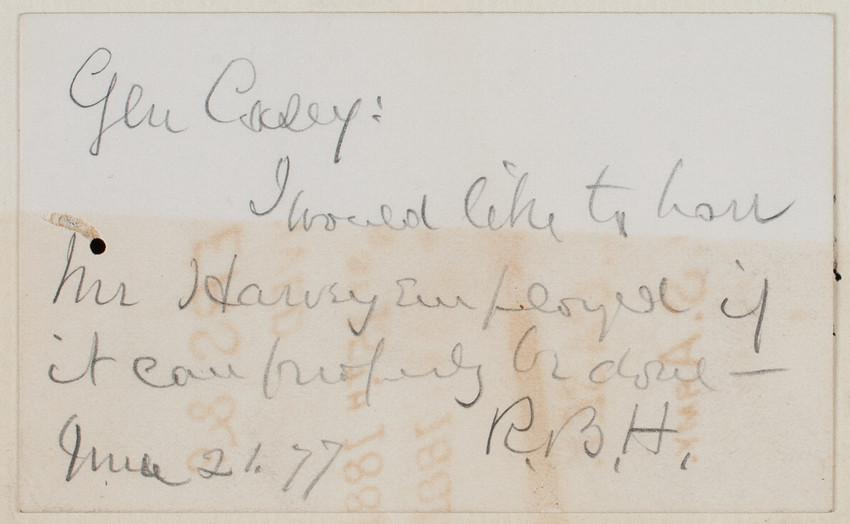 Gen Casey:
I would like to have
Mr Harvey Employed if
it can properly be done —
June 21. 77 R.B.H.